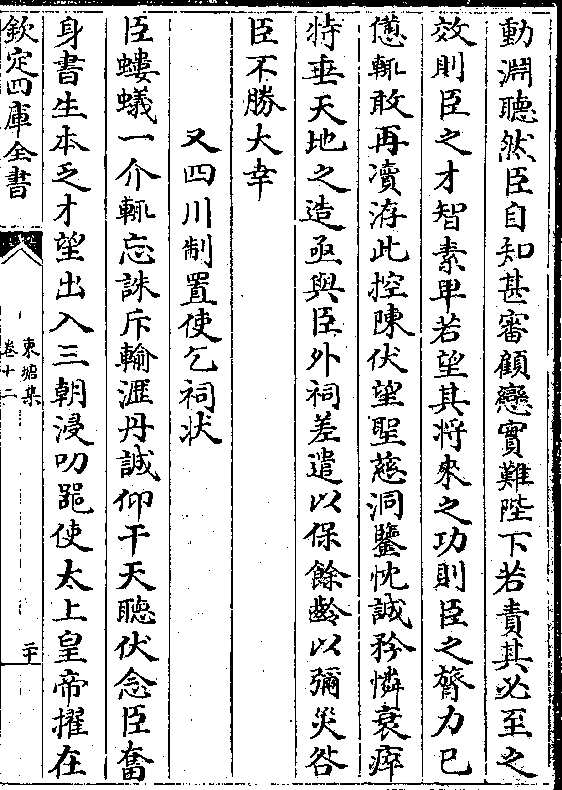 動淵聽然臣自知甚審顧戀實難陛下若責其必至之
效則臣之才智素卑若望其將來之功則臣之膂力已
憊輒敢再瀆洊此控陳伏望聖慈洞鑒忱誠矜憐衰瘁
特垂天地之造亟與臣外祠差遣以保餘齡以彌災咎
臣不勝大幸
又四川制置使乞祠狀
臣螻蟻一介輒忘誅斥輸瀝丹誠仰干天聽伏念臣奮
身書生本乏才望出入三朝浸叨器使太上皇帝擢在
欽定四庫全書
東塘集
卷十二
二十